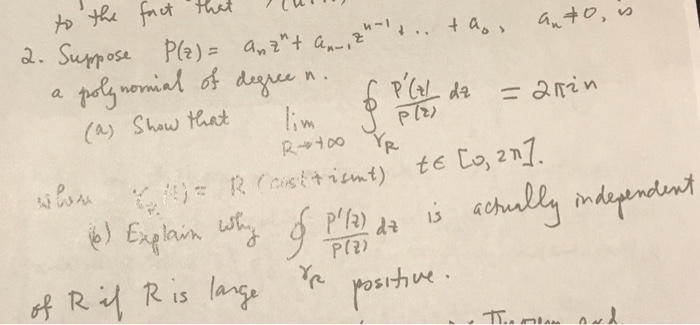 to the fact that
2. Suppose P(z) = aₙzⁿ + aₙ₋₁zⁿ⁻¹ + .. + a₀, aₙ ≠ 0, is
a polynomial of degree n.
(a) Show that lim R→+∞ ∮_γR P'(z)/P(z) dz = 2πin
where γ_R(t) = R(cost + isint) t ∈ [0, 2π].
(b) Explain why ∮_γR P'(z)/P(z) dz is actually independent
of R if R is large positive.
and